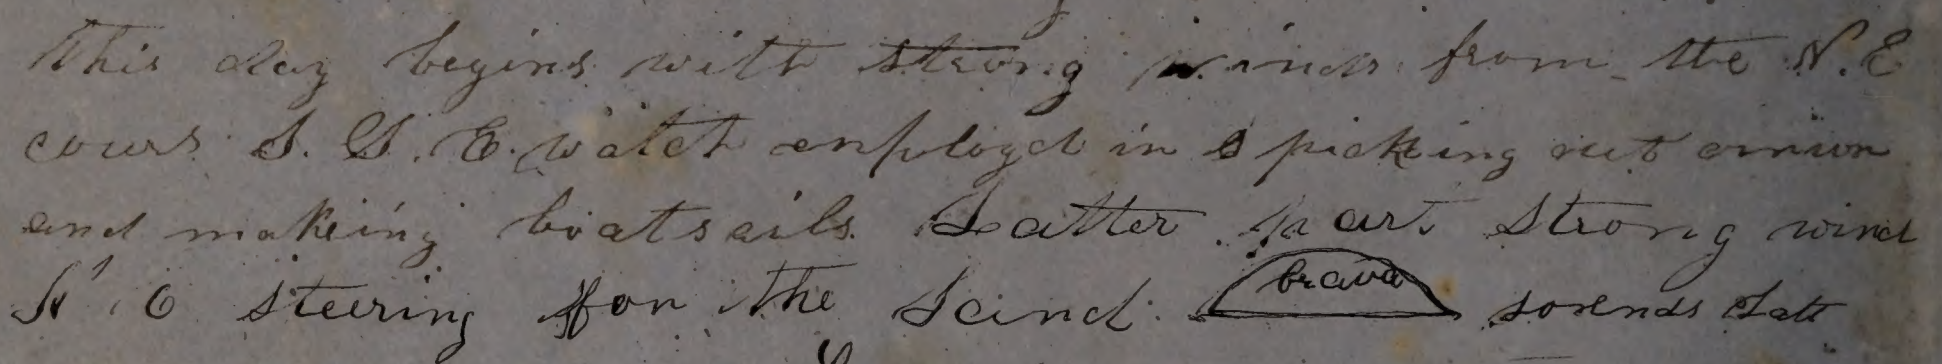 This day begins with strong winds from the N. E
cours S. S. E. watch employd in picking out onion
and making boatsails Latter part Strong wind
N E steering for the Land brava so ends Latt